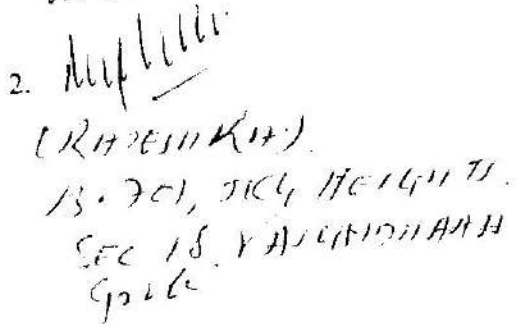 2.
(RAJESH KR)
B-701, SKY HEIGHTS.
SEC 18 VASUNDHARA